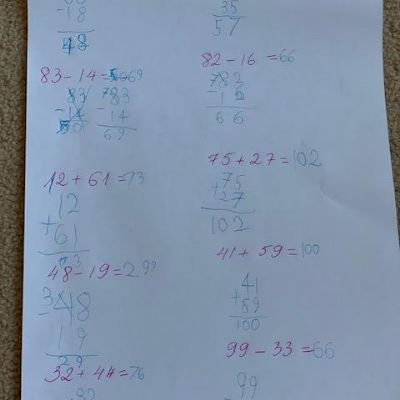 -18
48
83-14=69
83 83
-14 -14
69
12+61=73
12
+61
73
48-19=29
48
-19
29
32+44=76
32
35
57
82-16=66
782
-16
66
75+27=102
75
+27
102
41+59=100
41
+59
100
99-33=66
99